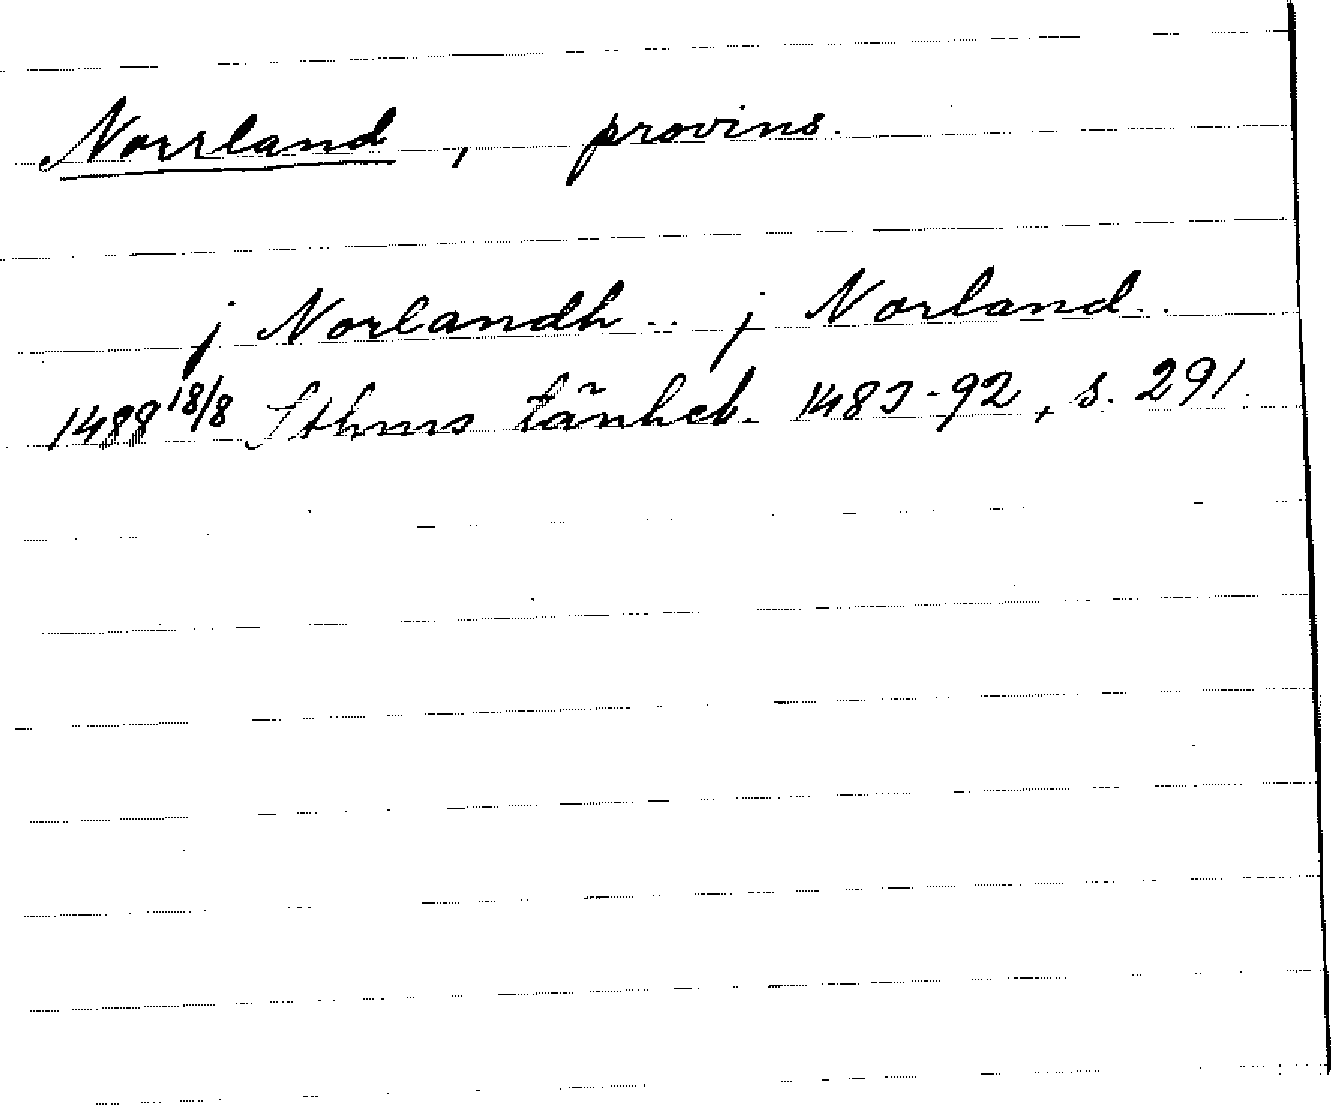 Norrland, provins.
j Norlandh.. j Norland..
1488 18/8 Sthms tänkeb. 1483-92, s. 291.